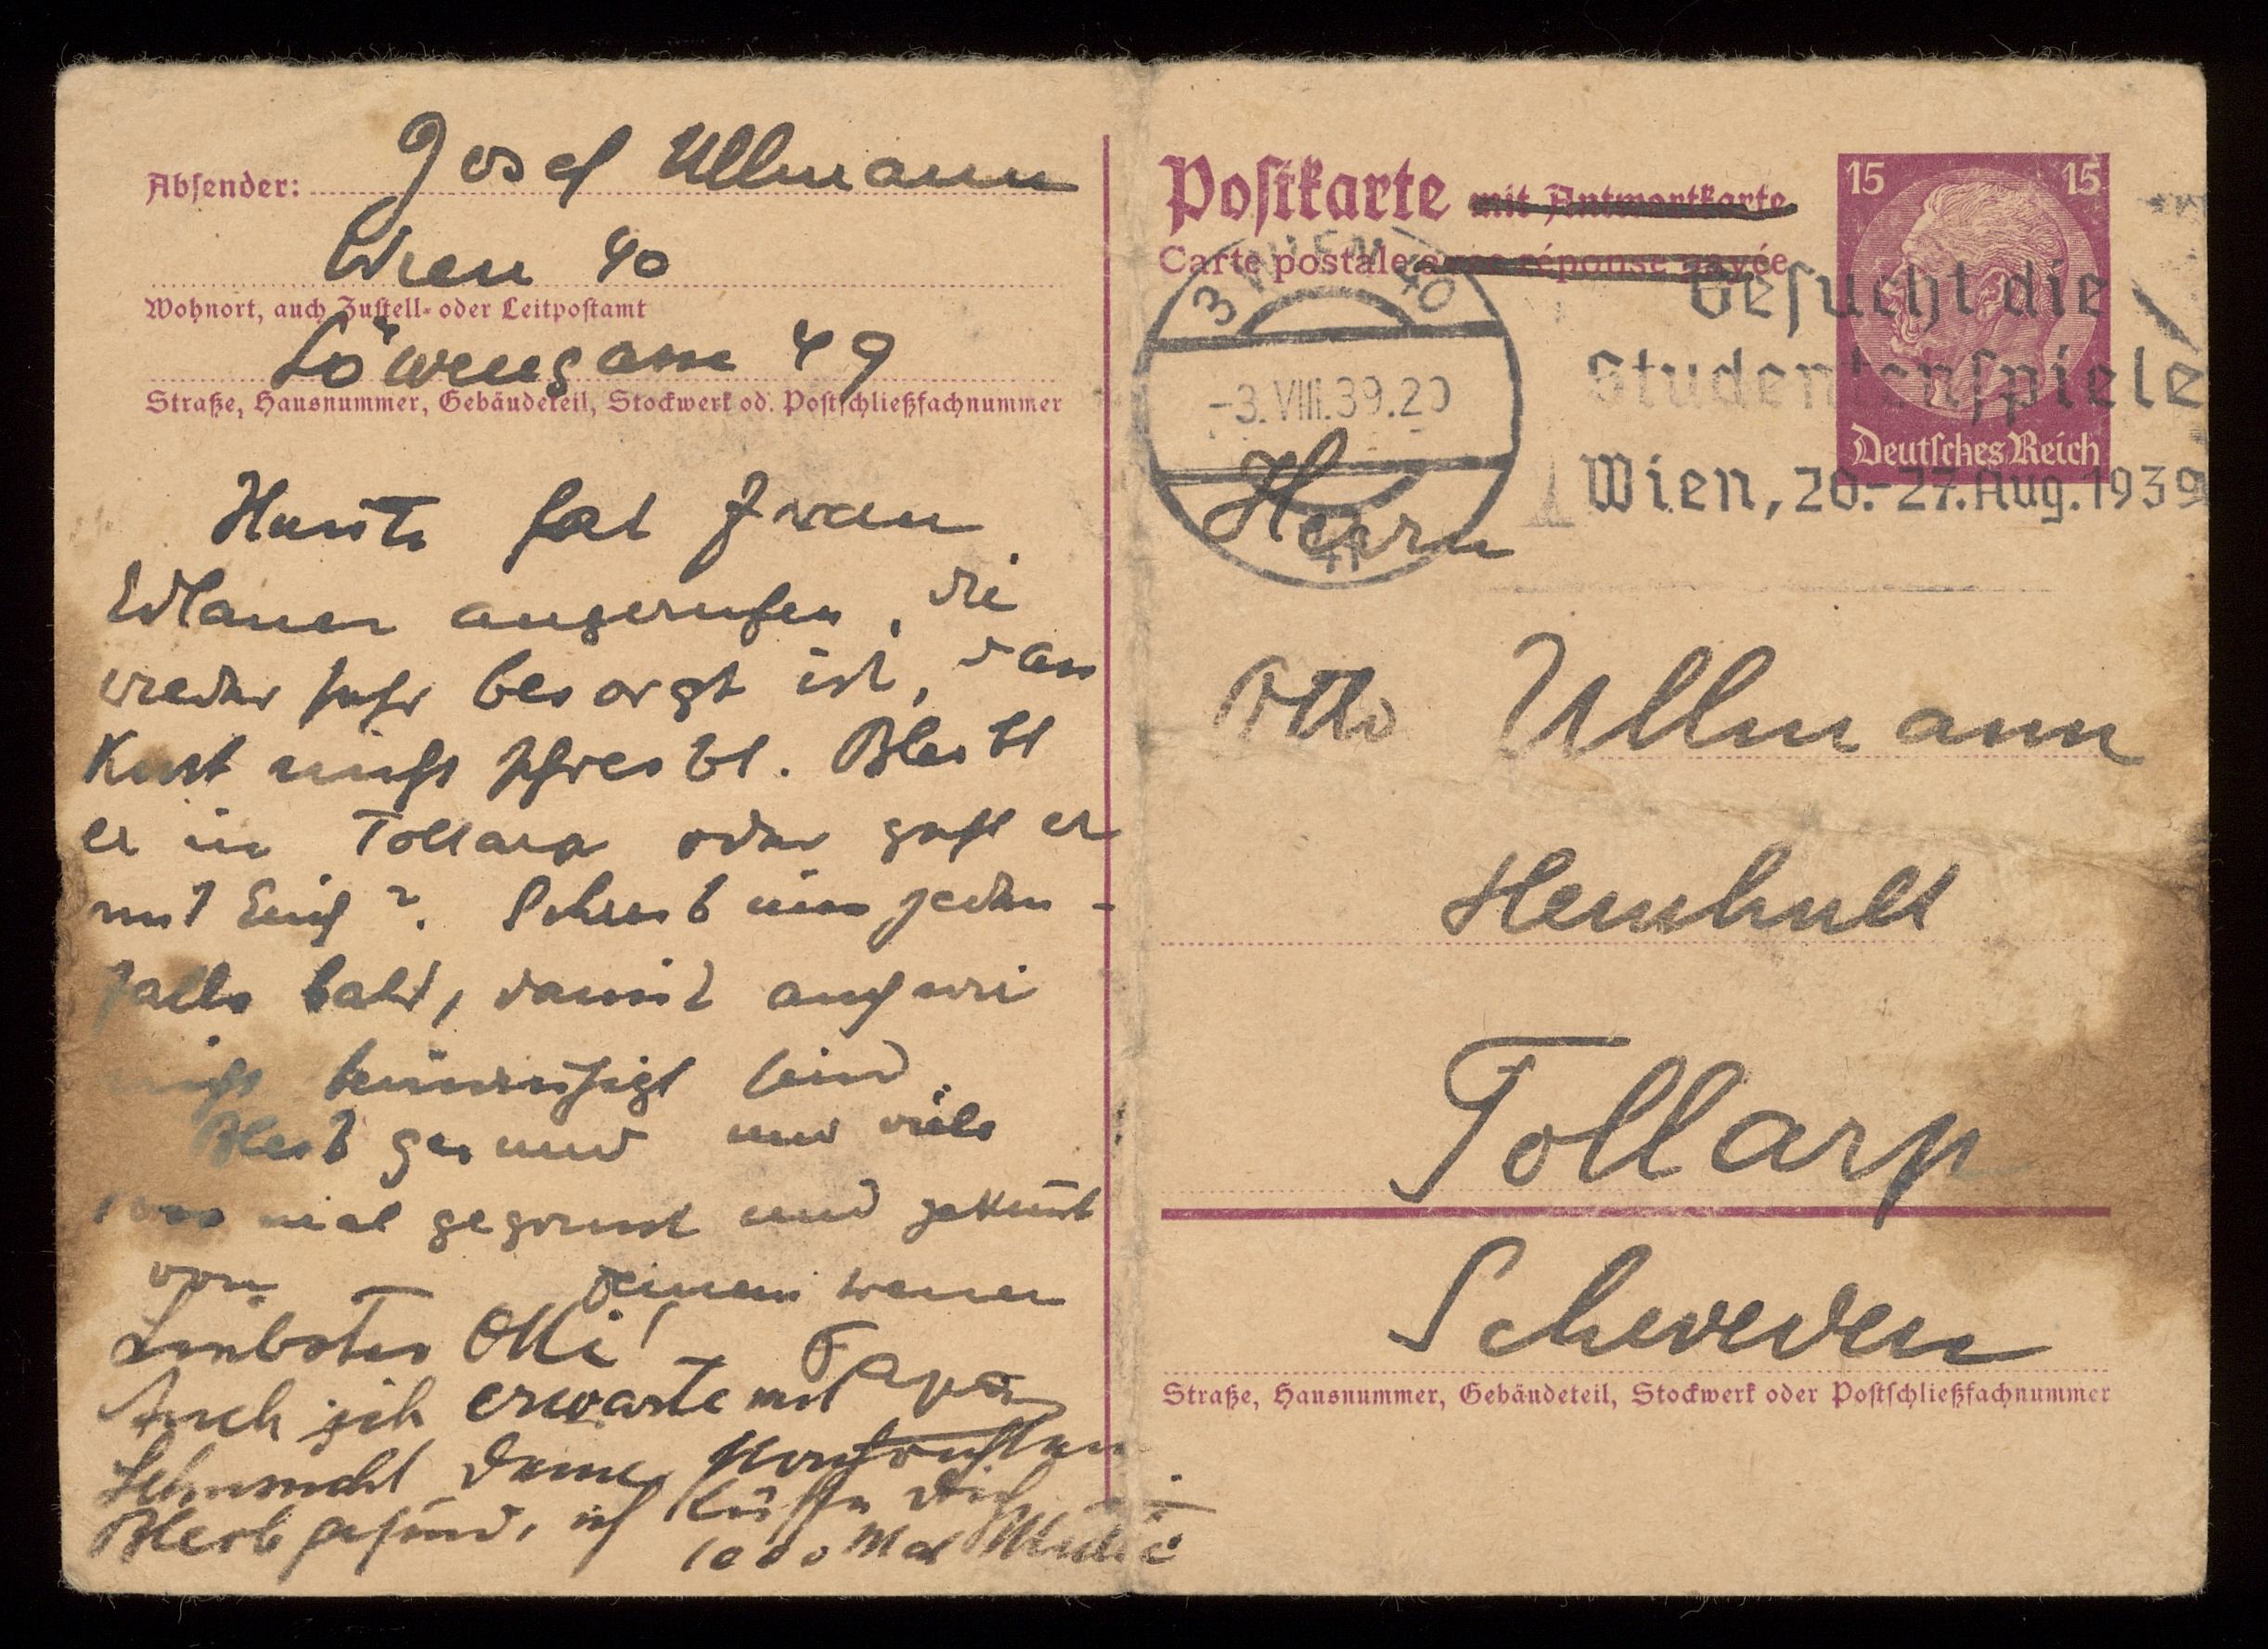 Absender: Josef Ullmann
Wien 40
Wohnort, auch Zustell- oder Leitpostamt
Löwengasse 49
Straße, Hausnummer, Gebäudeteil, Stockwerk od. Postschließfachnummer
Heute hat Frau
Edlauer angerufen, die
wieder sehr besorgt ist, dass
Kurt nicht schreibt. Bleibt
er in Tollarp oder geht er
mit Euch? Schreib uns jeden-
falls bald, damit auch wir
nicht beunruhigt sind.
Bleib gesund und viele
1000 mal gegrüsst und geküsst
von Deinem
Papa
Liebster Otti!
Auch ich erwarte mit
Sehnsucht Deine Nachrichten
Bleib gesund, ich küsse Dich
1000 Mal Mutti
Postkarte mit Antwortkarte
Carte postale avec réponse payée
15 15
Deutsches Reich
3 WIEN 40
-3.VIII.39.20
Besucht die
Studentenspiele
Wien, 20.-27.Aug.1939
Herrn
Otto Ullmann
Hemhult
Tollarp
Schweden
Straße, Hausnummer, Gebäudeteil, Stockwerk oder Postschließfachnummer